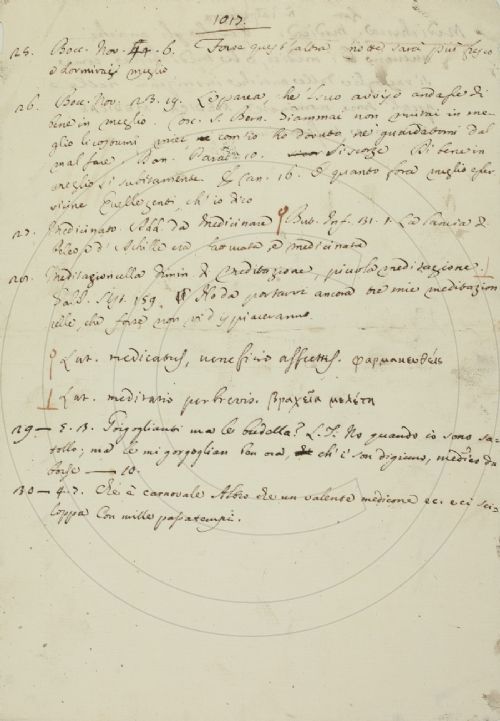 1017.
25. Bocc. Nov. 44. 6. Forse quest'altra notte sarà più fresco
e dormirai meglio
26. Bocc. Nov. 23. 19. Le parea, che l'suo avviso andasse di
bene in meglio. S. Bern. Giammai non mutai in me-
glio li costumi miei com'io ho dovuto nè guardatomi dal
mal fare Dan. Parad. 10. Si scorge Di bene in
meglio sì subitamente. E Can. 16. O quanto fora meglio esser
vicine Quelle genti, ch'io dico
27. Medicinato. Add. da Medicinare But. Inf. 31. 1. La lancia di
Peleo e d'Achille era fatturata, e medicinata
28. Meditazioncella Dimin. di Meditazione, piccola meditazione
Salv. 159. Ho da portarvi ancora tre mie meditazion
celle, che forse non vi dispiaceranno.
Lat. medicatus, veneficio affectus. φαρμακευθείς
Lat. meditatio perbrevis. βραχεῖα μελέτη
29 — 5. 13. Gorgoglianti ma le budella? L. T. No quando io sono sa-
tollo; ma le mi gorgoglian ora, ch'i' son digiuno, medico da
borse — 10.
30 — 4. 7. Ch'è a carnovale Albo che un valente medicone ec. e ci sci-
loppa Con mille passatempi.